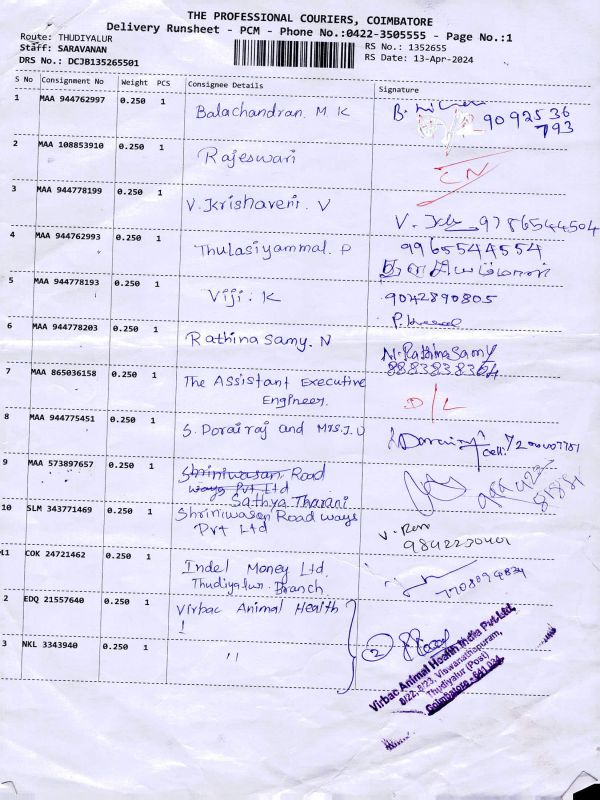 THE PROFESSIONAL COURIERS, COIMBATORE
Delivery Runsheet - PCM - Phone No.:0422-3505555 - Page No.:1
Route: THUDIYALUR
Staff: SARAVANAN
DRS No.: DCJB135265501
RS No.: 1352655
RS Date: 13-Apr-2024
S No Consignment No Weight PCS Consignee Details Signature
1 MAA 944762997 0.250 1 Balachandran. M K
9092536
793
2 MAA 108853910 0.250 1 Rajeswari CN
3 MAA 944778199 0.250 1 V. Krishaveni. V
9786544504
4 MAA 944762993 0.250 1 Thulasiyammal. P 9965544554
5 MAA 944778193 0.250 1 Viji. K 9042890805
6 MAA 944778203 0.250 1 Rathina Samy. N N. Rathina Samy
7 MAA 865036158 0.250 1 The Assistant Executive
Engineer. D/L
8 MAA 944775451 0.250 1 S. Dorairaj and Mrs. J. D
cell:
9 MAA 573897657 0.250 1 Shriniwasan Road
ways Pvt Ltd
Sathya Tharani
10 SLM 343771469 0.250 1 Shriniwasan Road ways
Pvt Ltd
11 COK 24721462 0.250 1 Indel Money Ltd.
Thudiyalur Branch
2 EDQ 21557640 0.250 1 Virbac Animal Health
3 NKL 3343940 0.250 1 "
2
Virbac Animal Health India Pvt Ltd.
8/22, 8/23, Viswanathapuram,
Thudiyalur (Post)
Coimbatore - 641 034